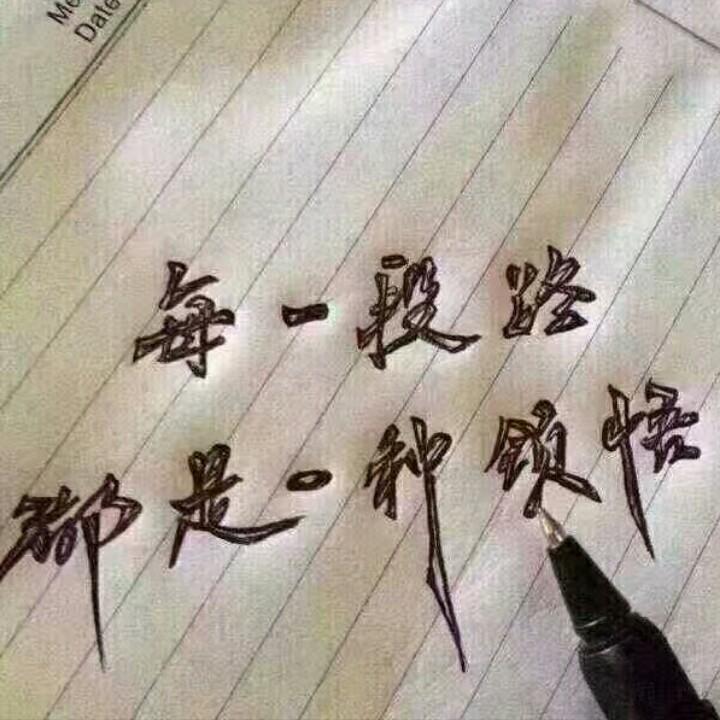 Me
Date
每一段路
都是一种领悟